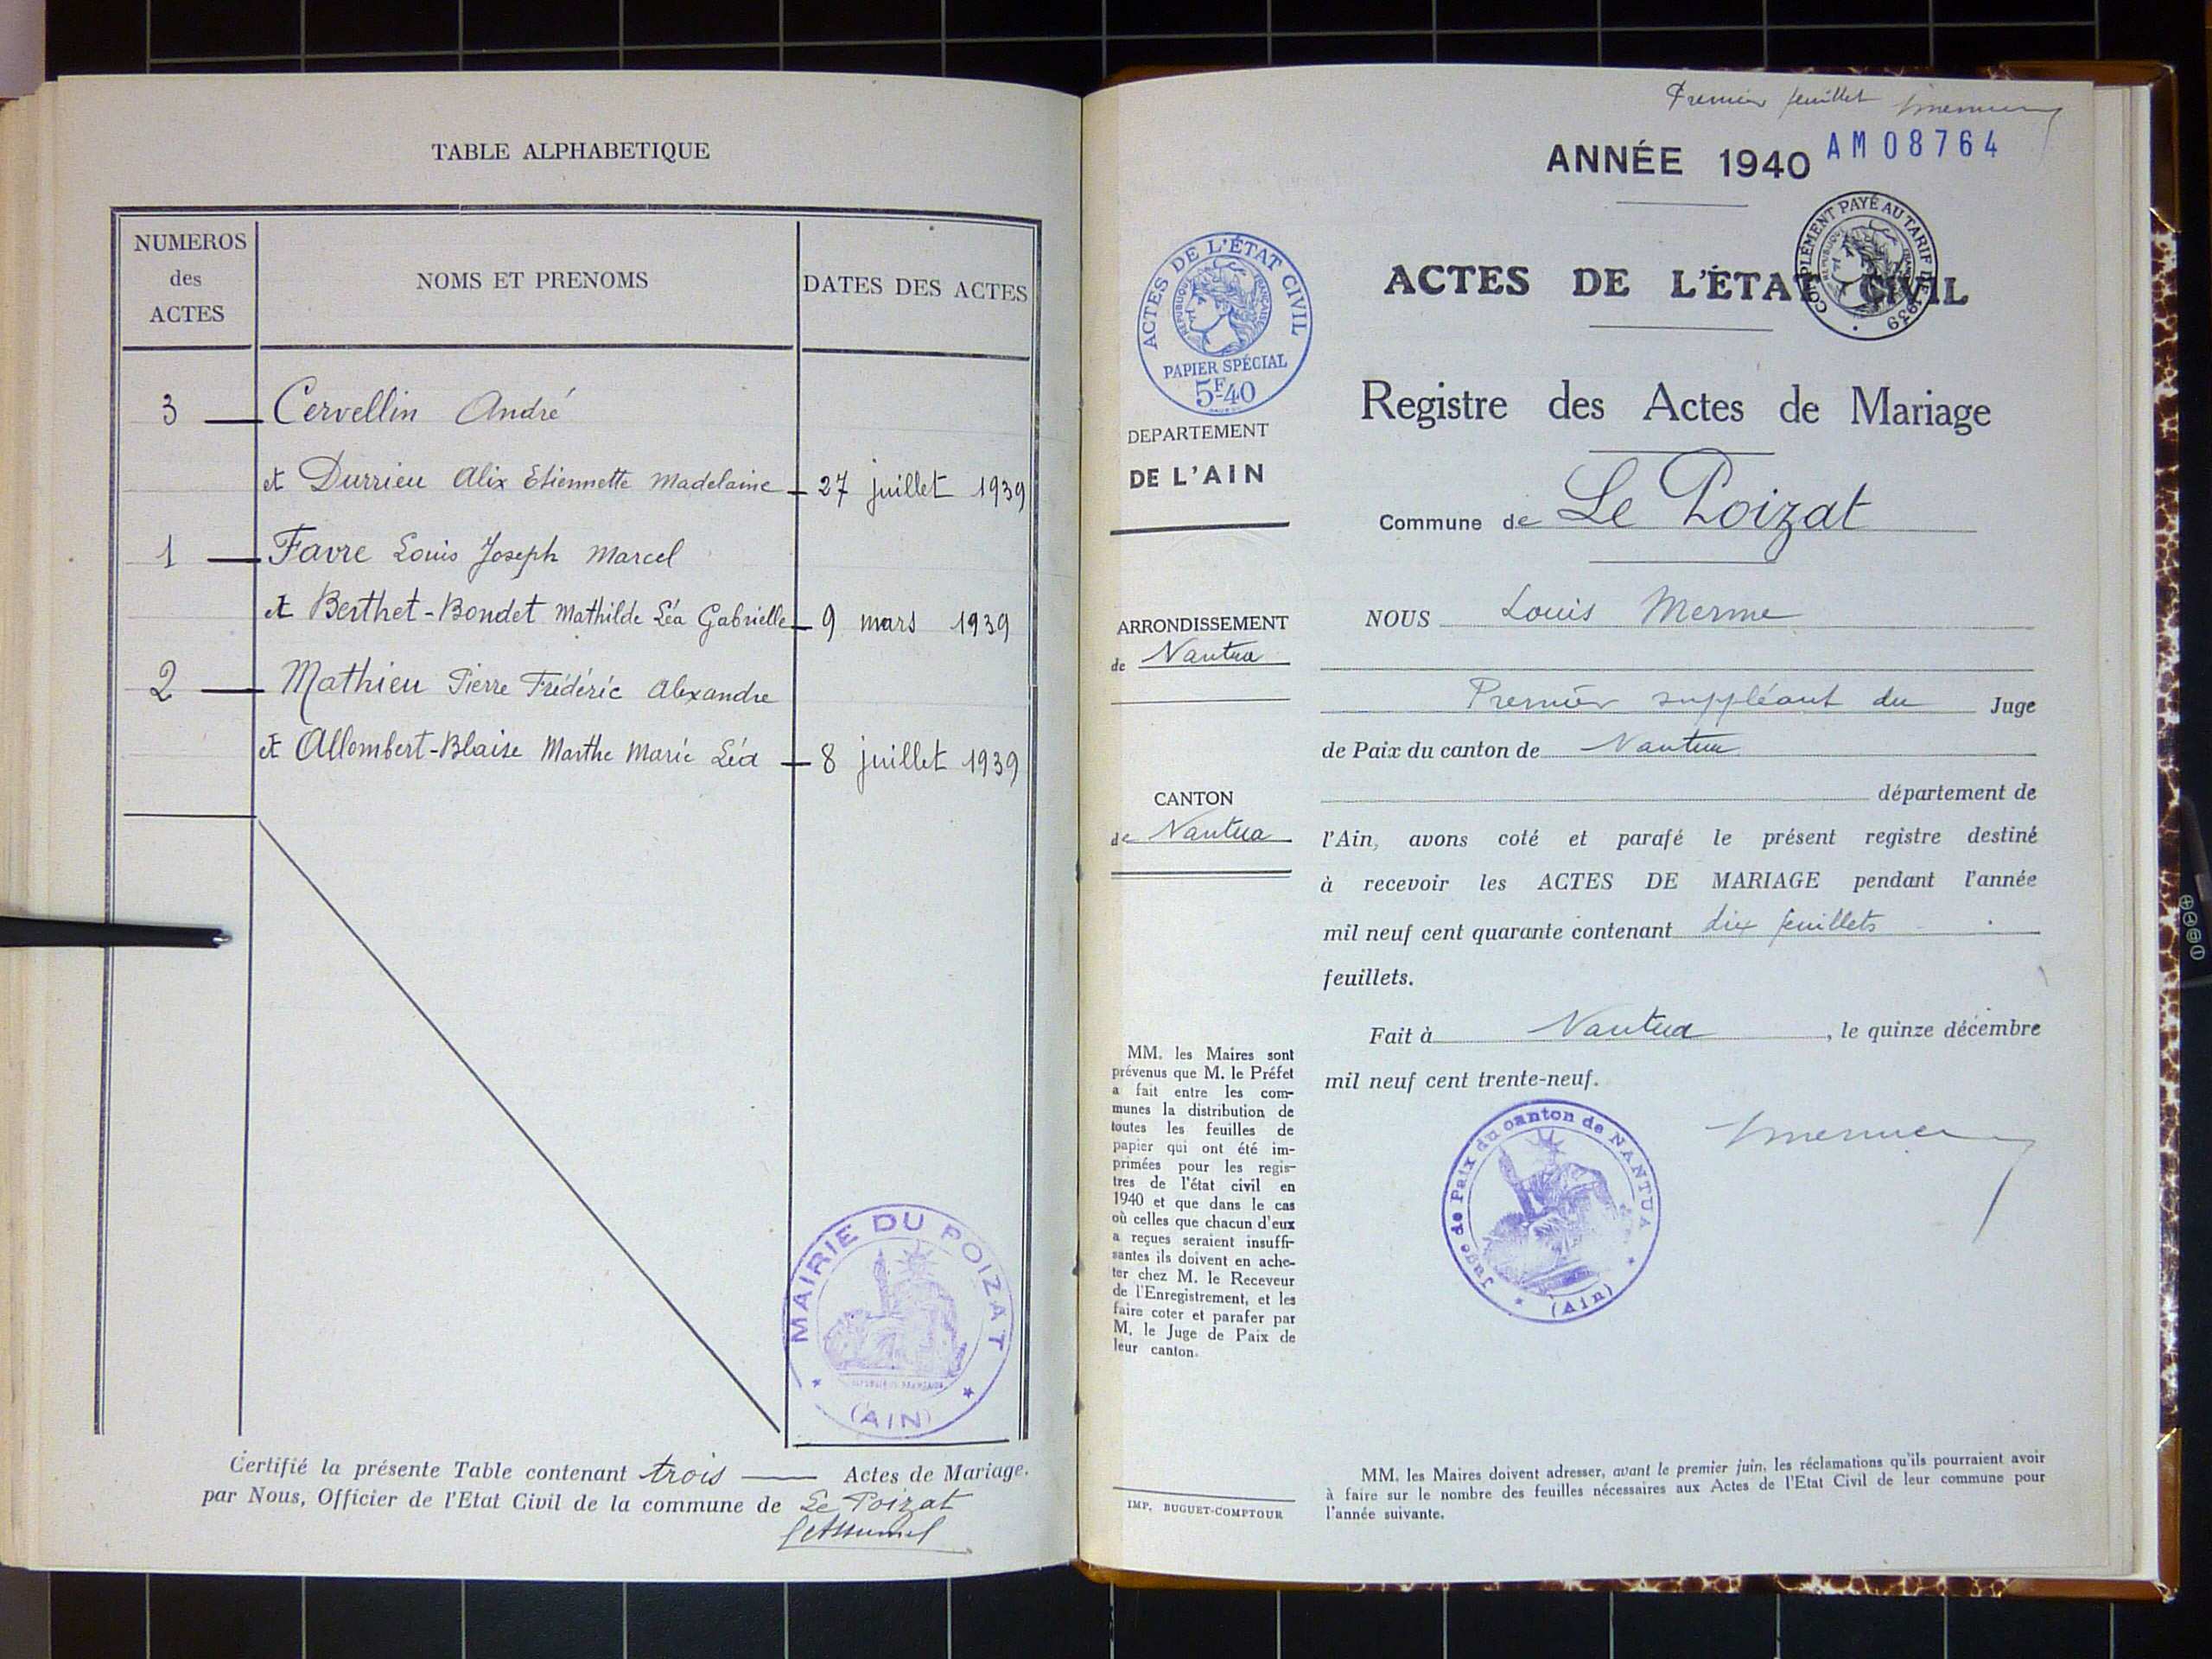 TABLE ALPHABETIQUE
NUMEROS
des
ACTES
NOMS ET PRENOMS
DATES DES ACTES
3 Cervellin André
et Durrieu Alix Etiennette Madelaine 27 juillet 1939
1 Favre Louis Joseph Marcel
et Berthet-Bondet Mathilde Léa Gabrielle 9 mars 1939
2 Mathieu Pierre Frédéric Alexandre
et Allombert-Blaise Marthe Marie Léa 8 juillet 1939
MAIRIE DU POIZAT
REPUBLIQUE FRANÇAISE
(AIN)
Certifié la présente Table contenant trois Actes de Mariage.
par Nous, Officier de l'Etat Civil de la commune de Le Poizat
Premier feuillet
ANNÉE 1940
AM08764
COMPLÉMENT PAYÉ AU TARIF DE 1939
REPUBLIQUE FRANÇAISE
ACTES DE L'ÉTAT CIVIL
REPUBLIQUE FRANÇAISE
PAPIER SPÉCIAL
5F40
ACTES DE L'ÉTAT CIVIL
Registre des Actes de Mariage
Commune de Le Poizat
DEPARTEMENT
DE L'AIN
ARRONDISSEMENT
de Nantua
CANTON
de Nantua
MM. les Maires sont
prévenus que M. le Préfet
a fait entre les com-
munes la distribution de
toutes les feuilles de
papier qui ont été im-
primées pour les regis-
tres de l'état civil en
1940 et que dans le cas
où celles que chacun d'eux
a reçues seraient insuffi-
santes ils doivent en ache-
ter chez M. le Receveur
de l'Enregistrement, et les
faire coter et parafer par
M. le Juge de Paix de
leur canton.
IMP. BUGUET-COMPTOUR
NOUS Louis Merme
Premier suppléant du Juge
de Paix du canton de Nantua
département de
l'Ain, avons coté et parafé le présent registre destiné
à recevoir les ACTES DE MARIAGE pendant l'année
mil neuf cent quarante contenant dix feuillets
feuillets.
Fait à Nantua, le quinze décembre
mil neuf cent trente-neuf.
Juge de Paix du canton de NANTUA
(Ain)
MM. les Maires doivent adresser, avant le premier juin, les réclamations qu'ils pourraient avoir
à faire sur le nombre des feuilles nécessaires aux Actes de l'Etat Civil de leur commune pour
l'année suivante.